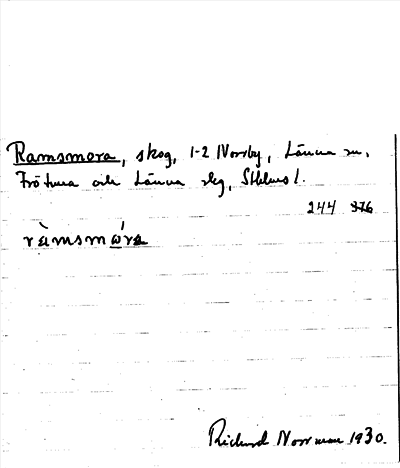 Ramsmora, skog, 1-2 Norrby, Länna sn.
Frötuna och Länna slg, Sthlms l.
244 376
ràmsmώra
Richard Norrman 1930.